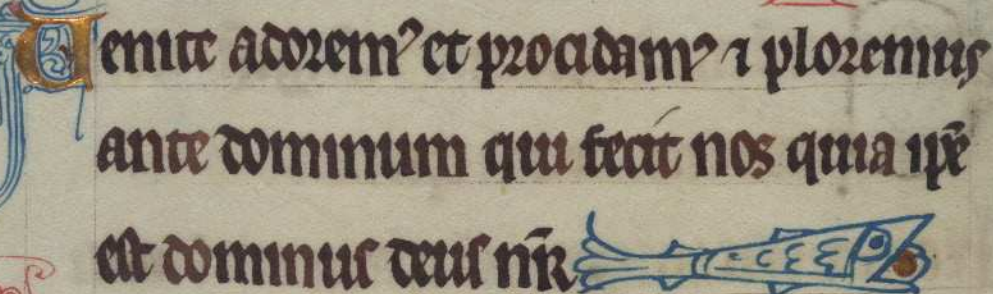 Venite adoremꝰ et procidamꝰ ⁊ ploremus
ante dominum qui fecit nos quia ip̄e
est dominus deus nr̄